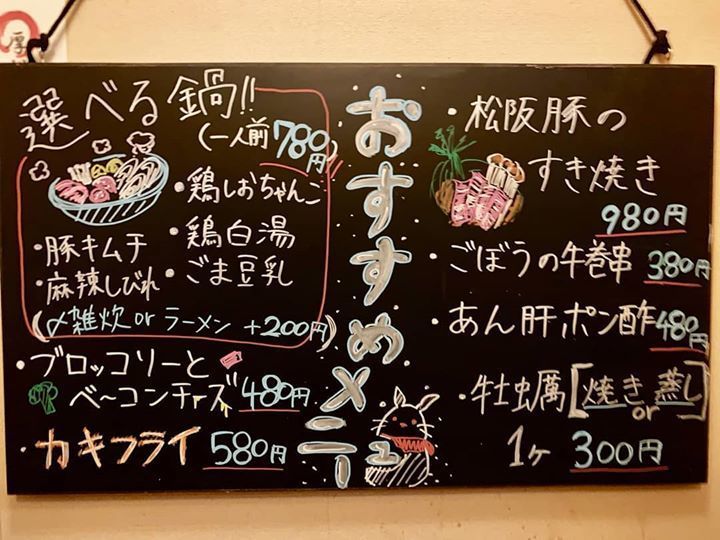 厚
選べる鍋!!
(一人前780円)
・鶏しおちゃんこ
・鶏白湯
・ごま豆乳
・豚キムチ
・麻辣しびれ
(〆雑炊orラーメン +200円)
・ブロッコリーと
ベーコンチーズ 480円
・カキフライ 580円
おすすめメニュー
・松阪豚の
すき焼き
980円
・ごぼうの牛巻串 380円
・あん肝ポン酢 480円
・牡蠣[焼き or 蒸し]
1ヶ 300円